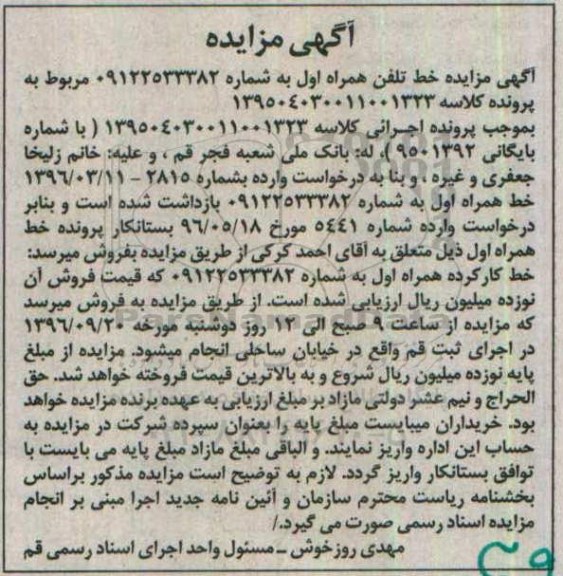 آگهی مزایده
آگهی مزایده خط تلفن همراه اول به شماره ۰۹۱۲۲۵۳۳۳۸۲ مربوط به
پرونده کلاسه ۱۳۹۵۰۴۰۳۰۰۱۱۰۰۱۳۲۳
بموجب پرونده اجرائی کلاسه ۱۳۹۵۰۴۰۳۰۰۱۱۰۰۱۳۲۳ ( با شماره
بایگانی ۹۵۰۱۳۹۲ )، له: بانک ملی شعبه فجر قم ، و علیه: خانم زلیخا
جعفری و غیره ، و بنا به درخواست وارده بشماره ۲۸۱۵ – ۱۳۹۶/۰۳/۱۱
خط همراه اول به شماره ۰۹۱۲۲۵۳۳۳۸۲ بازداشت شده است و بنابر
درخواست وارده شماره ۵۴۴۱ مورخ ۹۶/۰۵/۱۸ بستانکار پرونده خط
همراه اول ذیل متعلق به آقای احمد کرکی از طریق مزایده بفروش میرسد:
خط کارکرده همراه اول به شماره ۰۹۱۲۲۵۳۳۳۸۲ که قیمت فروش آن
نوزده میلیون ریال ارزیابی شده است. از طریق مزایده به فروش میرسد
که مزایده از ساعت ۹ صبح الی ۱۲ روز دوشنبه مورخه ۱۳۹۶/۰۹/۲۰
در اجرای ثبت قم واقع در خیابان ساحلی انجام میشود. مزایده از مبلغ
پایه نوزده میلیون ریال شروع و به بالاترین قیمت فروخته خواهد شد. حق
الحراج و نیم عشر دولتی مازاد بر مبلغ ارزیابی به عهده برنده مزایده خواهد
بود. خریداران میبایست مبلغ پایه را بعنوان سپرده شرکت در مزایده به
حساب این اداره واریز نمایند. و الباقی مبلغ مازاد مبلغ پایه می بایست با
توافق بستانکار واریز گردد. لازم به توضیح است مزایده مذکور براساس
بخشنامه ریاست محترم سازمان و آئین نامه جدید اجرا مبنی بر انجام
مزایده اسناد رسمی صورت می گیرد./
مهدی روزخوش ـ مسئول واحد اجرای اسناد رسمی قم
ParsNamadData